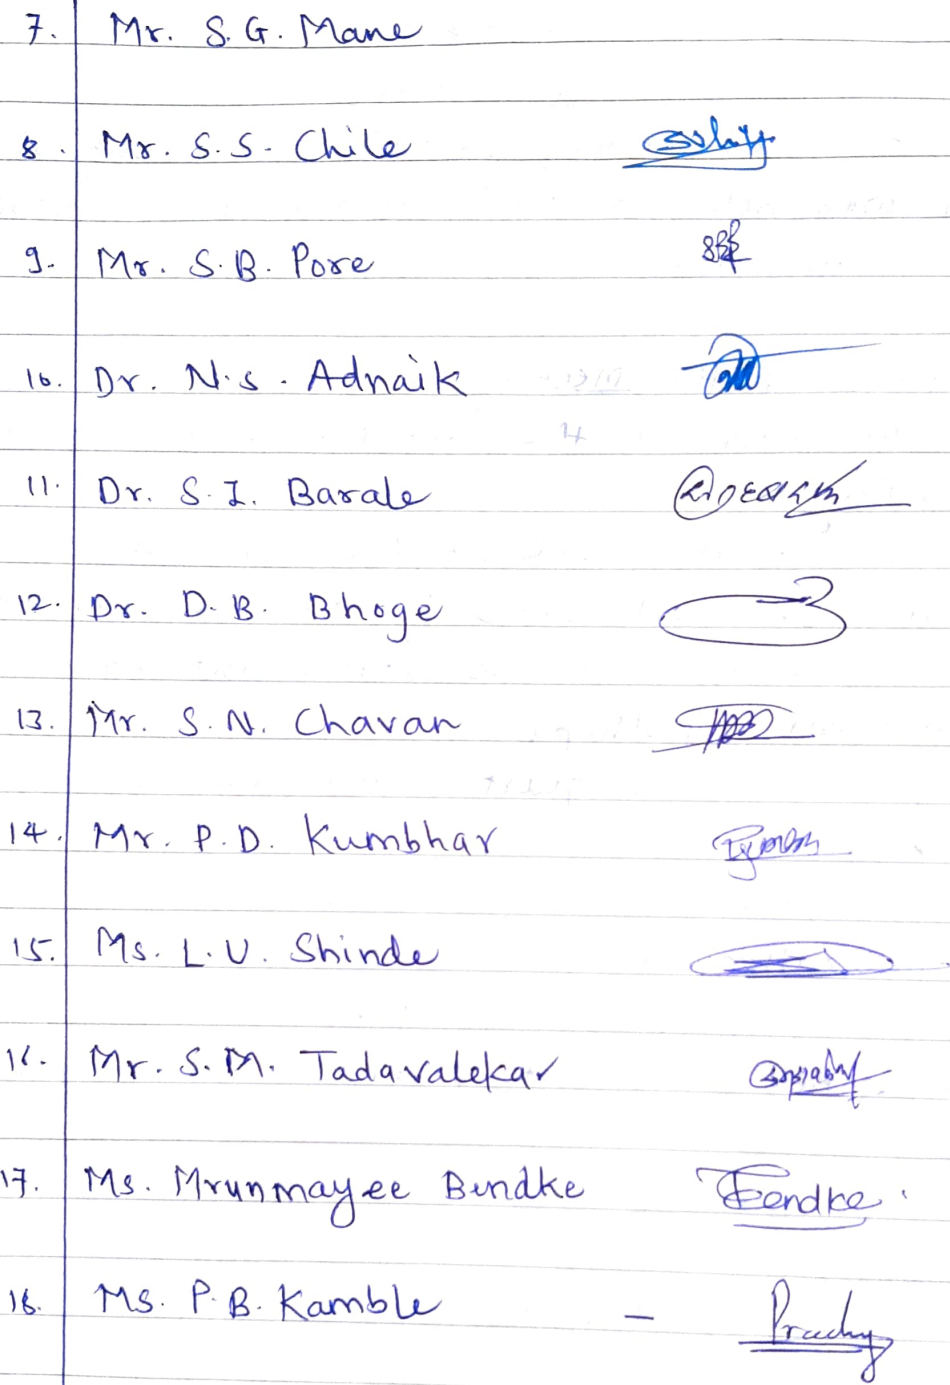 7. Mr. S. G. Mane
8. Mr. S. S. Chile
9. Mr. S. B. Pore
10. Dr. N. S. Adnaik
11. Dr. S. I. Barale
12. Dr. D. B. Bhoge
13. Mr. S. N. Chavan
14. Mr. P. D. Kumbhar
15. Ms. L. U. Shinde
16. Mr. S. M. Tadavalekar
17. Ms. Mrunmayee Bendke Bendke
18. Ms. P. B. Kamble -